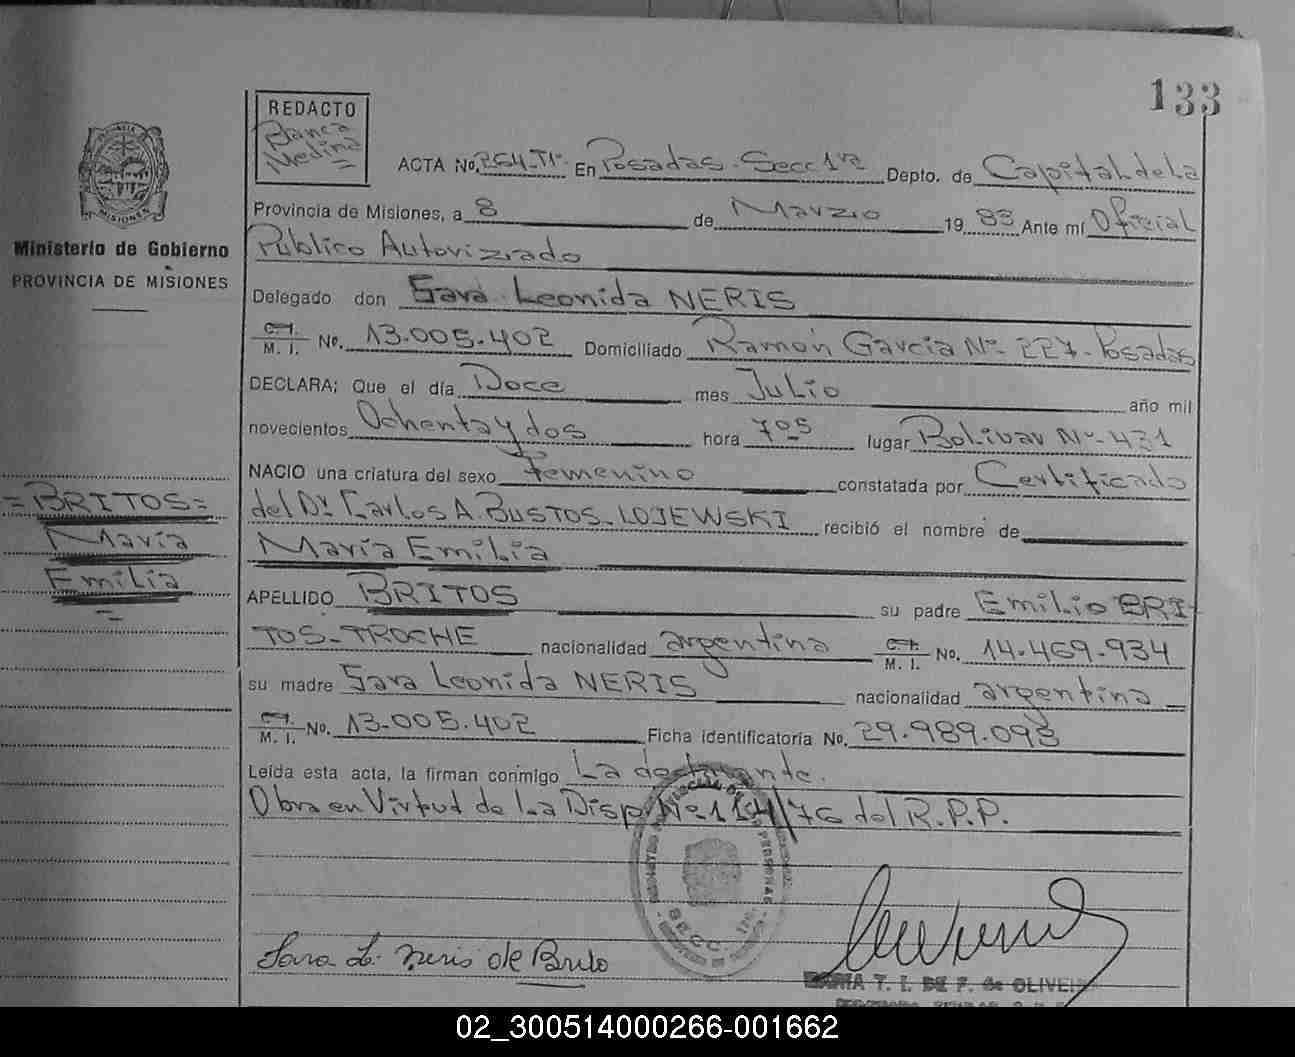 133
REDACTO
Blanca
Medina
ACTA No. 264-Tº. En Posadas-Secc 1ra Depto. de Capital de la
Provincia de Misiones, a 8 de Marzo 1983 Ante mí Oficial
Público Autorizado
Delegado don Sara Leonida NERIS
C. I.
M. I. No. 13.005.402 Domiciliado Ramón García Nº- 227- Posadas
DECLARA; Que el día Doce mes Julio año mil
novecientos Ochenta y dos hora 705 lugar Bolivar Nº- 431
NACIO una criatura del sexo Femenino constatada por Certificado
del Dr Carlos A. BUSTOS-LOJEWSKI recibió el nombre de
María Emilia
APELLIDO BRITOS su padre Emilio BRI-
TOS-TROCHE nacionalidad argentina C. I. M. I. No. 14.469.934
su madre Sara Leonida NERIS nacionalidad argentina
C. I.
M. I. No. 13.005.402 Ficha identificatoria No. 29.989.093
Leída esta acta, la firman conmigo La declarante.
Obra en Virtud de la Disp Nº 114/76 del R.P.P.
Sara L. Neris de Brito
MARIA T. I. DE F. de OLIVEIRA
MISIONES
Ministerio de Gobierno
PROVINCIA DE MISIONES
=BRITOS=
María
Emilia
SECC.
02_300514000266-001662